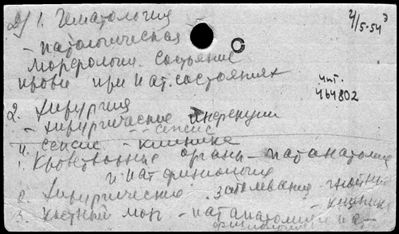 2) 1. Гематология
4/5-54 г
- патологическая
морфология. состояние
крови при пат. состояниях
инт.
464802
2. Хирургия
- хирургические инфекции
- сепсис
11. сепсис - клиника
1. Кроветворные органы - пат анатомия
и пат физиология
2. Хирургические заболевания гнойные
- клиника
3. костный мозг - пат анатомия и па-
физиология